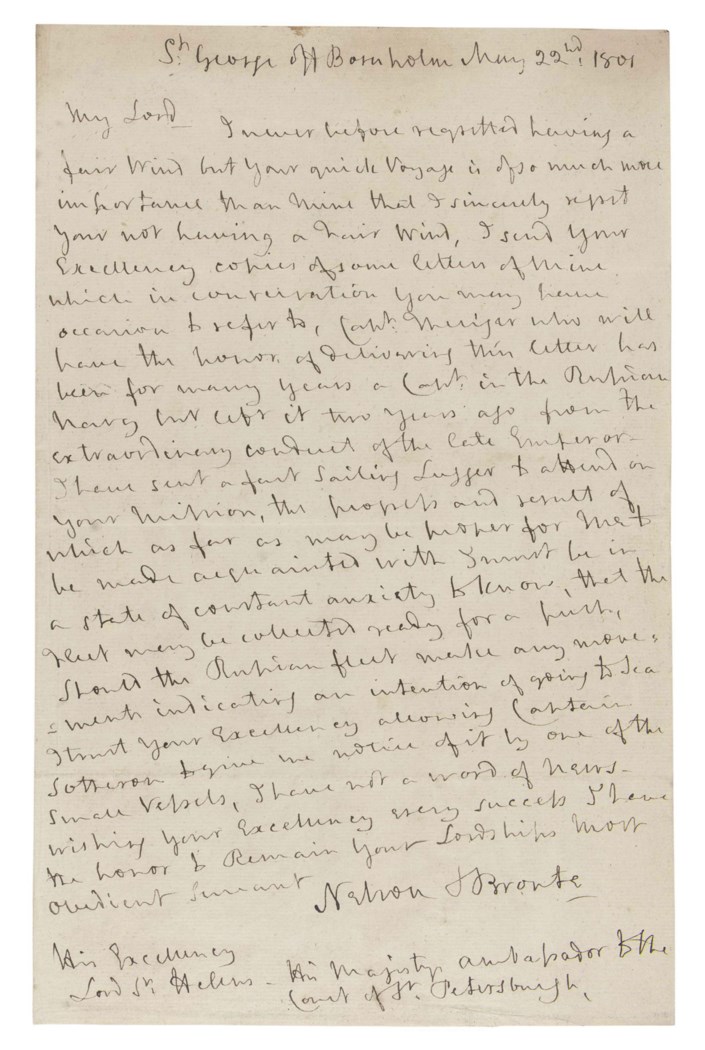 St. George off Bornholm May 22nd: 1801
My Lord
I never before regretted having a
fair Wind but Your quick Voyage is of so much more
importance than mine that I sincerely regret
Your not having a Fair Wind, I send Your
Excellency copies of some letters of mine
which in conversation You may have
occasion to refer to, Capt: who will
have the honor of delivering this letter has
been for many Years a Capt: in the Russian
Navy but left it two years ago from the
extraordinary conduct of the late Emperor -
I have sent a fast Sailing Lugger to attend on
Your Mission, the progress and result of
which as far as may be proper for Me to
be made acquainted with I must be in
a state of constant anxiety to know, that the
Fleet may be collected ready for a push,
Should the Russian fleet make any move=
=ments indicating an intention of going to Sea
I trust Your Excellency allowing Captain
Sotheron to give me notice of it by one of the
Small Vessels, I have not a word of News -
wishing Your Excellency every success I have
the honor to Remain Your Lordships Most
Obedient Servant
Nelson & Bronte
His Excellency
Lord St. Helens - His Majestys ambassador to the
Court of St. Petersburgh,